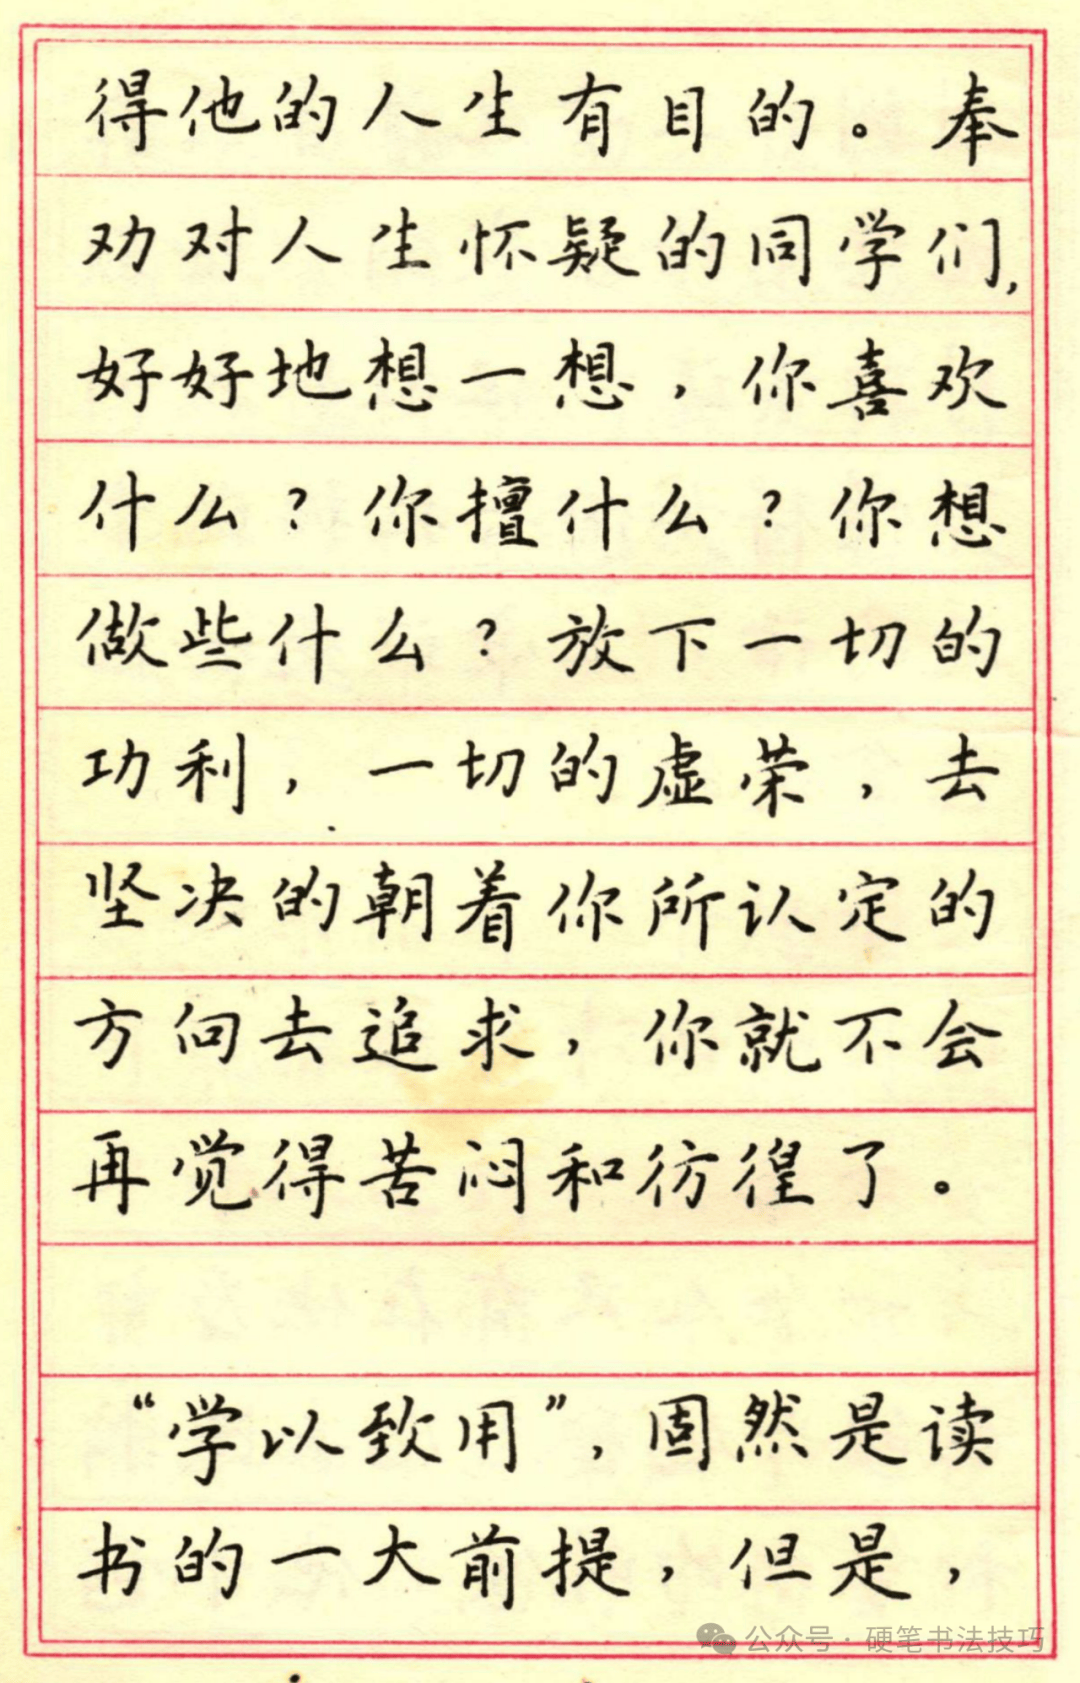 得他的人生有目的。奉
劝对人生怀疑的同学们，
好好地想一想，你喜欢
什么？你擅什么？你想
做些什么？放下一切的
功利，一切的虚荣，去
坚决的朝着你所认定的
方向去追求，你就不会
再觉得苦闷和彷徨了。
“学以致用”，固然是读
书的一大前提，但是，
公众号·硬笔书法技巧